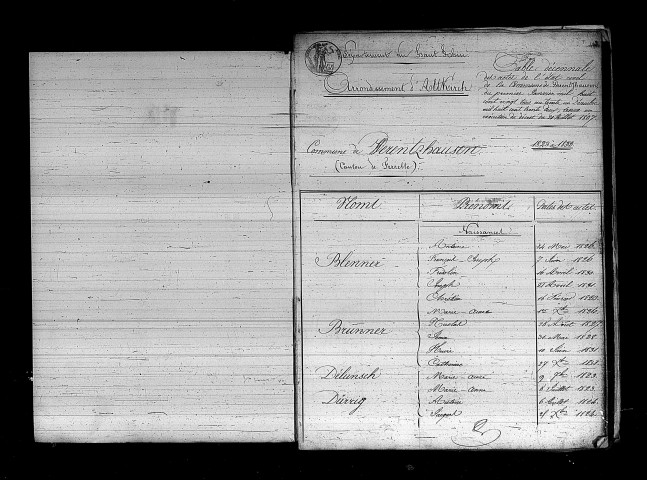 Département du Haut Rhin
Arrondissement d'Altkirch
Table décennale
des actes de l'état civil
de la Commune de
du premier Janvier mil huit
cent vingt trois au trente un Décembre
mil huit cent trente deux, en
exécution du décret du 20 Juillet 1807.
Commune de
1823 à 1832
(Canton de Ferrette)
Noms Prénoms Dates des actes
Naissances
Antoine 24 Mai 1826
Blenner François Joseph 7 Juin 1826
Fridolin 16 Avril 1830
Joseph 27 Avril 1831
Chrétien 16 Février 1823
Marie-Anne 1826
Brunner Nicolas 26 Août 1827
Mai 1828
Henri 10 Juin 1831
Catherine 27 Xbre
Delunsch Marie-Anne 9 9bre 1823
Marie-Anne 6 Juillet 1823
Dirrig Antoine 6 Juillet
Xbre 1824